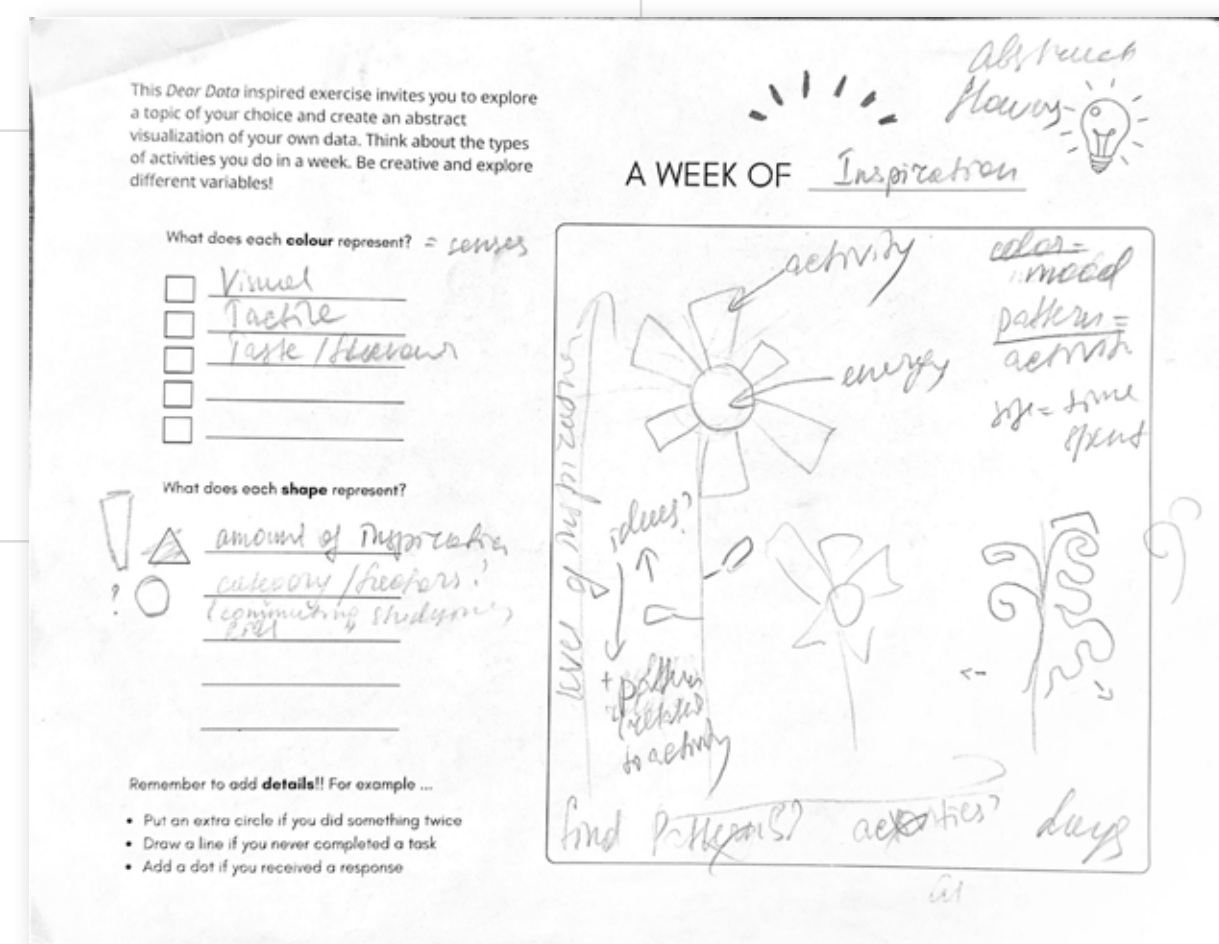 This Dear Data inspired exercise invites you to explore
a topic of your choice and create an abstract
visualization of your own data. Think about the types
of activities you do in a week. Be creative and explore
different variables!
Abstract
flowers
A WEEK OF Inspiration
What does each colour represent? = senses
Visual
Tactile
Taste /
What does each shape represent?
! amount of Inspiration
? category /
(commuting, studying,
Remember to add details!! For example ...
• Put an extra circle if you did something twice
• Draw a line if you never completed a task
• Add a dot if you received a response
activity
energy
color =
mood
pattern =
activity
size = time
spent
level of inspiration
ideas?
+ pattern
related
to activity
find patterns? activities? days